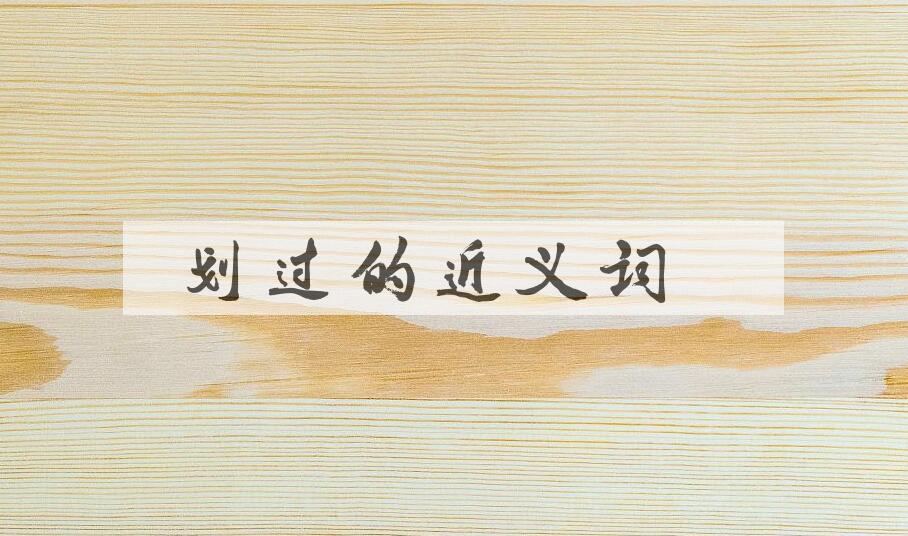 划过的近义词